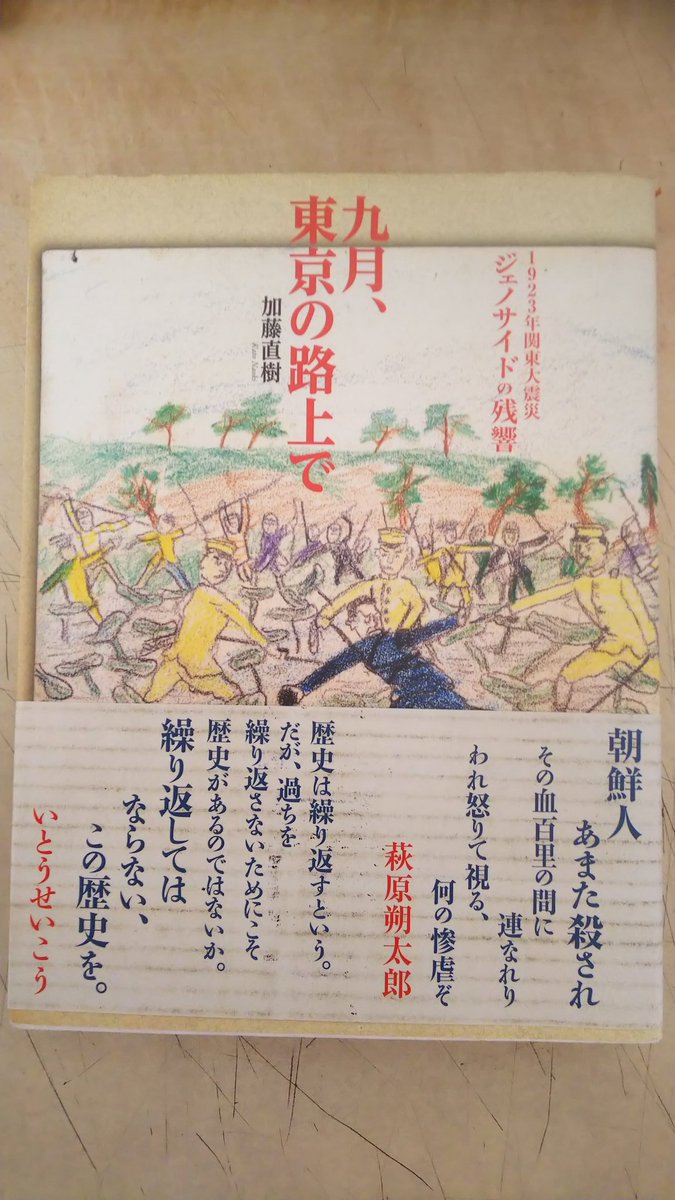 九月、
東京の路上で
加藤直樹
Kato Naoki
1923年関東大震災
ジェノサイドの残響
朝鮮人
あまた殺され
その血百里の間に
連なれり
われ怒りて視る、
何の惨虐ぞ
萩原朔太郎
歴史は繰り返すという。
だが、過ちを
繰り返さないためにこそ
歴史があるのではないか。
繰り返しては
ならない、
この歴史を。
いとうせいこう